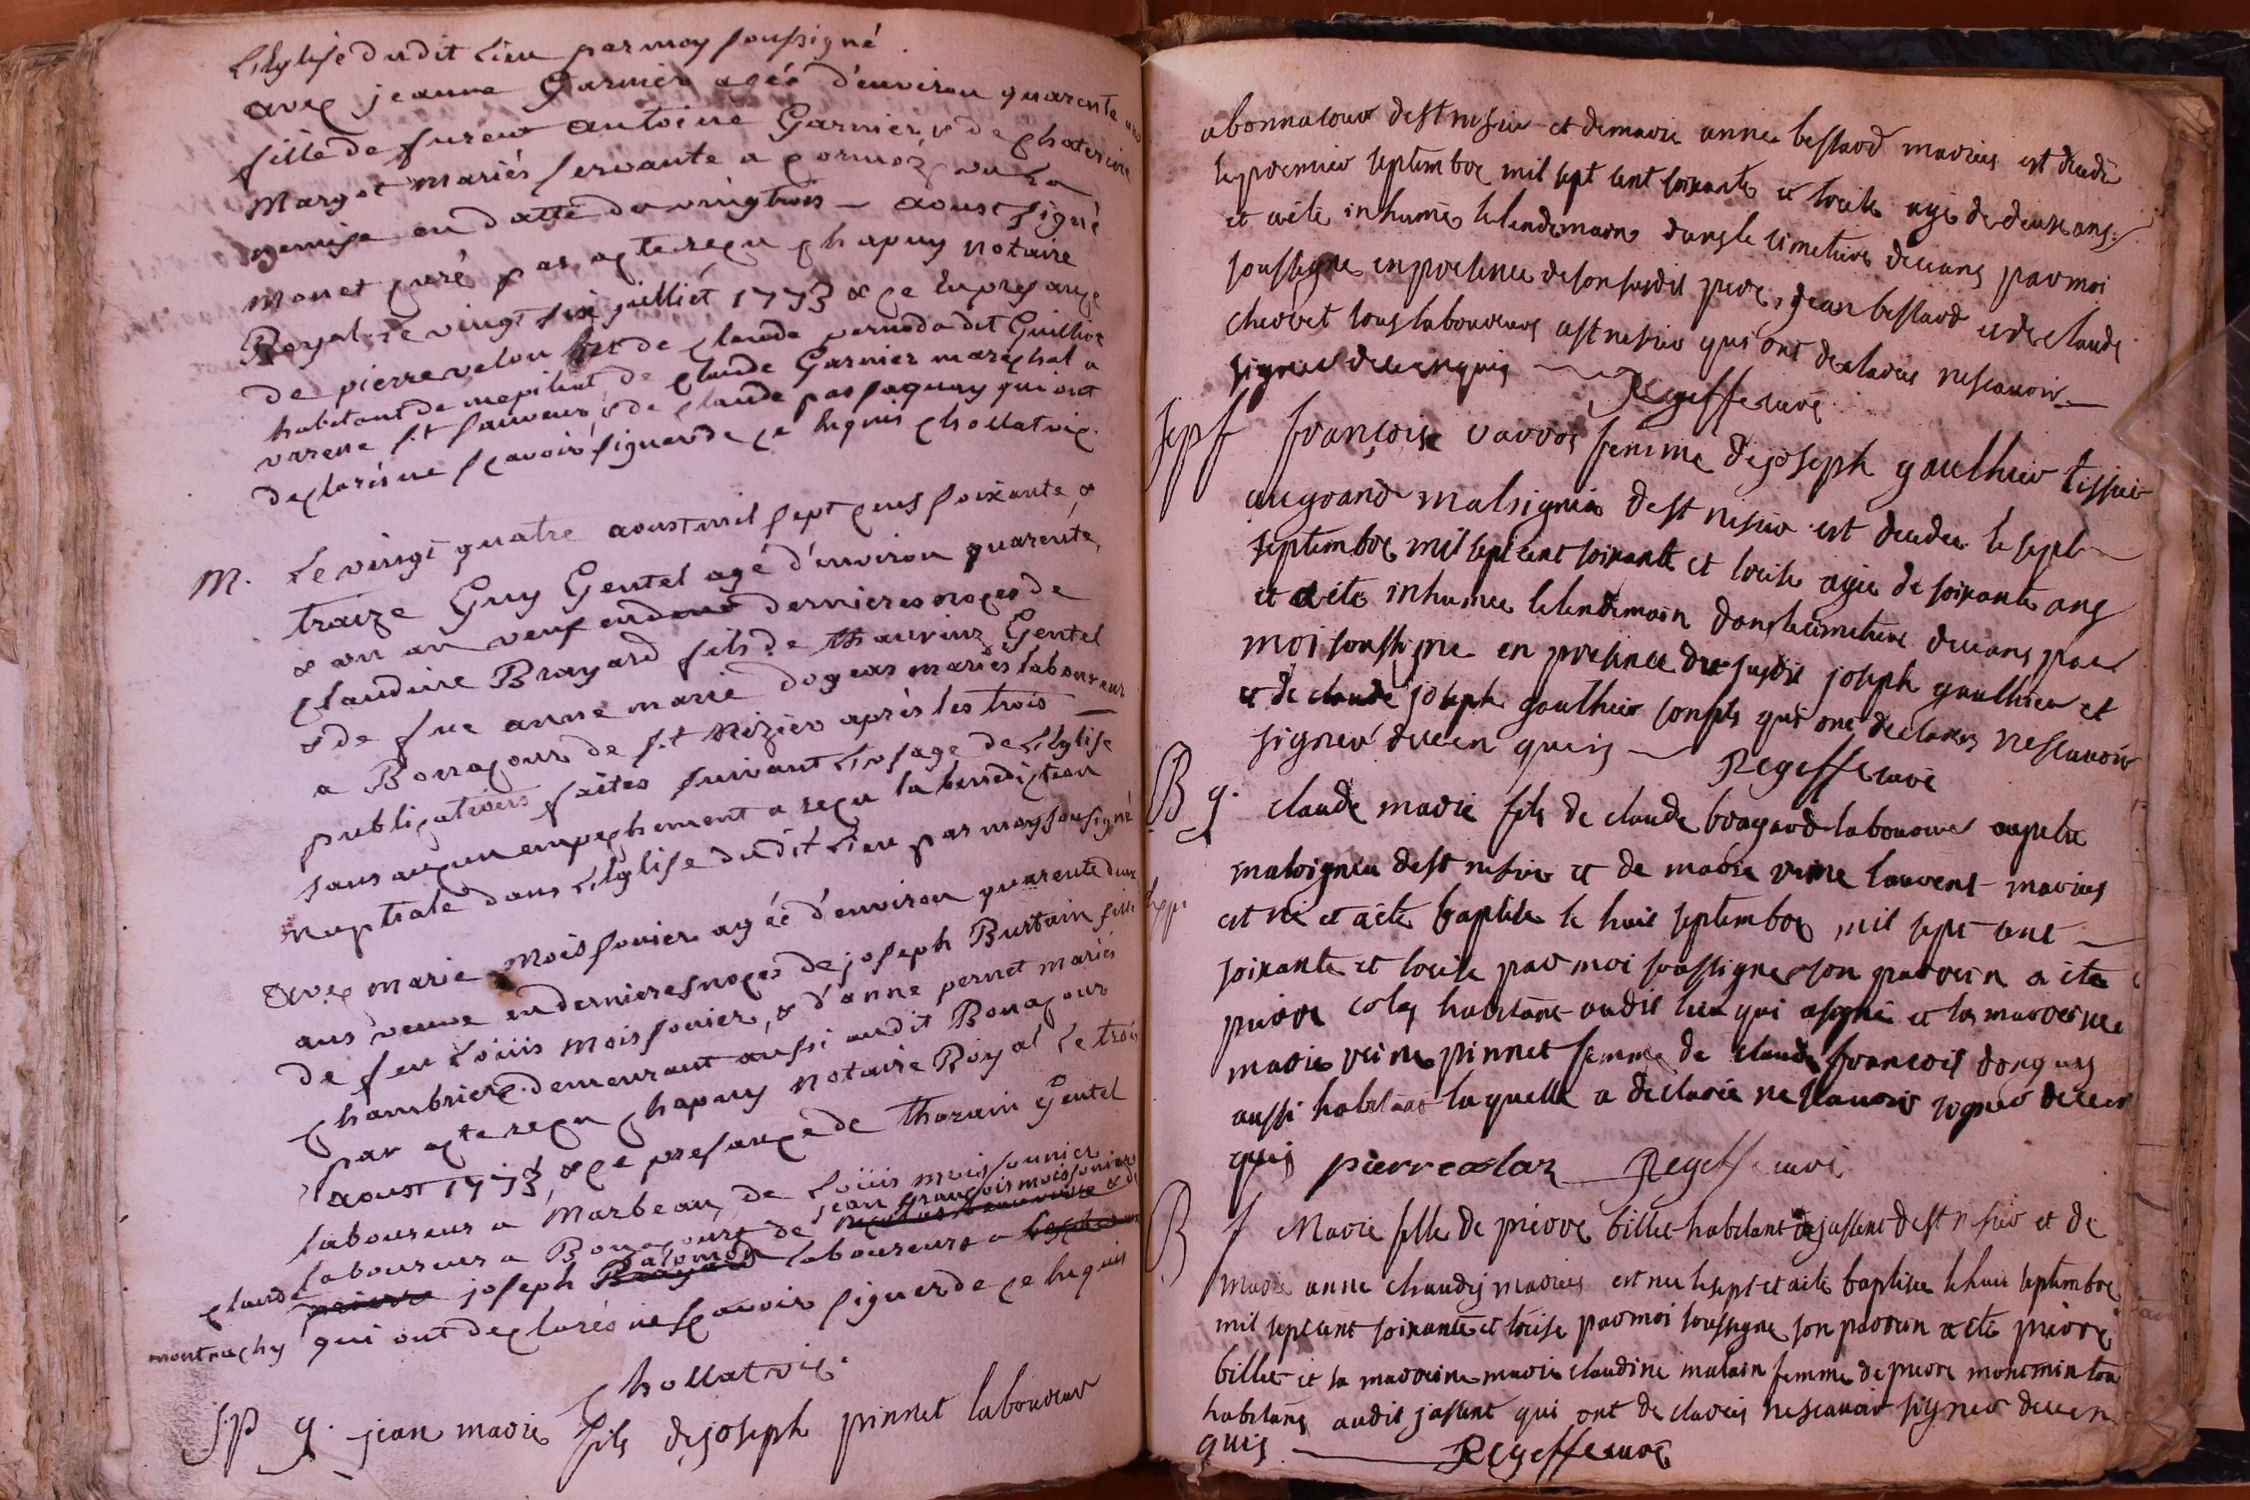 L'Eglise dudit Lieu par moy soussigné
avec jeanne Garnier agée d'environ quarente ans
fille de furent antoine Garnier & de chaterine
Margot mariés servante a cormoz vu la
remise en datte du vingtrois aoust signé
Monet curé par acte reçu chapuy notaire
Royal le vingt six juilliét 1773 & ce En presance
de pierre velon et de claude vernoda dit Guillot
habitant de mepiliat de claude Garnier maréchal a
varene st sauveur & de claude passaquay qui ont
declarés ne scavoir signer de ce Enquis chollatvie.
M. Le vingt quatre aoust mil sept cens soixante &
traize Guy Gentel agé d'environ quarente
& un an veuf en dernieres noces de
claudine Brayard fils de thaurinz Gentel
& de fue anne marie dogeas mariés laboureur
a Bonnacour de st Nizier après les trois
publications faites suivant L'usage de L'Eglise
sans aucun empechement a reçu la benediction
nuptiale dans L'Eglise dudit Lieu par moy sousigné
avec marie moissonier agée d'environ quarente deux
ans veuve en dernieres noces de joseph Burtain fille
de feu Loüis moissonier, & d'anne pernet mariés
chambriere demeurant aussi audit Bonacour
par acte reçu chapuy Notaire Royal Le trois
aoust 1773, & ce presance de Thorain Gentel
laboureur a Marbeau, de Loüis moissonnier
jean françois moissonier
laboureur a Bonacourt de & de
claude joseph Salomon laboureurs a
montrachy qui ont declarés ne scavoir signer de ce Enquis
chollatvie.
SP g. jean marie fils de joseph pinnet laboureur
abonnacour de st nisier et de marie anne bestard mariés est decedé
le premier septembre mil sept cent soixante et treize agé de deux ans
et a été inhumé le lendemain dans le cimetiere de ceans par moi
soussigné en presence de son susdit pere, jean bestard et de claude
chevret tous laboureurs a st nisier qui ont declarés ne scavoir
signer de ce enquis Regeffe curé
sep f françoise varvos femme de joseph gauthier tissier
au grand malsignia de st nisier est decedée le sept
septembre mil sept cent soixante et treize agée de soixante ans
et a été inhumée le lendemain dans le cimetiere de ceans par
moi soussigné en presence du susdit joseph gauthier et
et de claude joseph gauthier son fils qui ont declarés ne scavoir
signer de ce en quis Regeffe curé
B g. claude marie fils de claude brayard laboureur au petit
malsignia de st nisier et de marie reine laurent mariés
est né et a été baptisé le huit septembre mil sept cent
soixante et treize par moi soussigné son parrein a été
pierre colas habitant audit lieu qui a signé et la marreine
marie reine pinnet femme de claude françois dongeas
aussi habitant laquelle a declarée ne scavoir signer de ce en
quis pierre colas Regeffe curé
B f Marie fille de pierre billet habitant de jassent de st nisier et de
marie anne chaudy mariés est née le sept et a été baptisée le huit septembre
mil sept cent soixante et treize par moi soussigné son parrein a été pierre
billet et sa marreine marie claudine malain femme de pierre monmintou
habitans audit jassent qui ont declarés ne scavoir signer de ce en
quis Regeffe curé